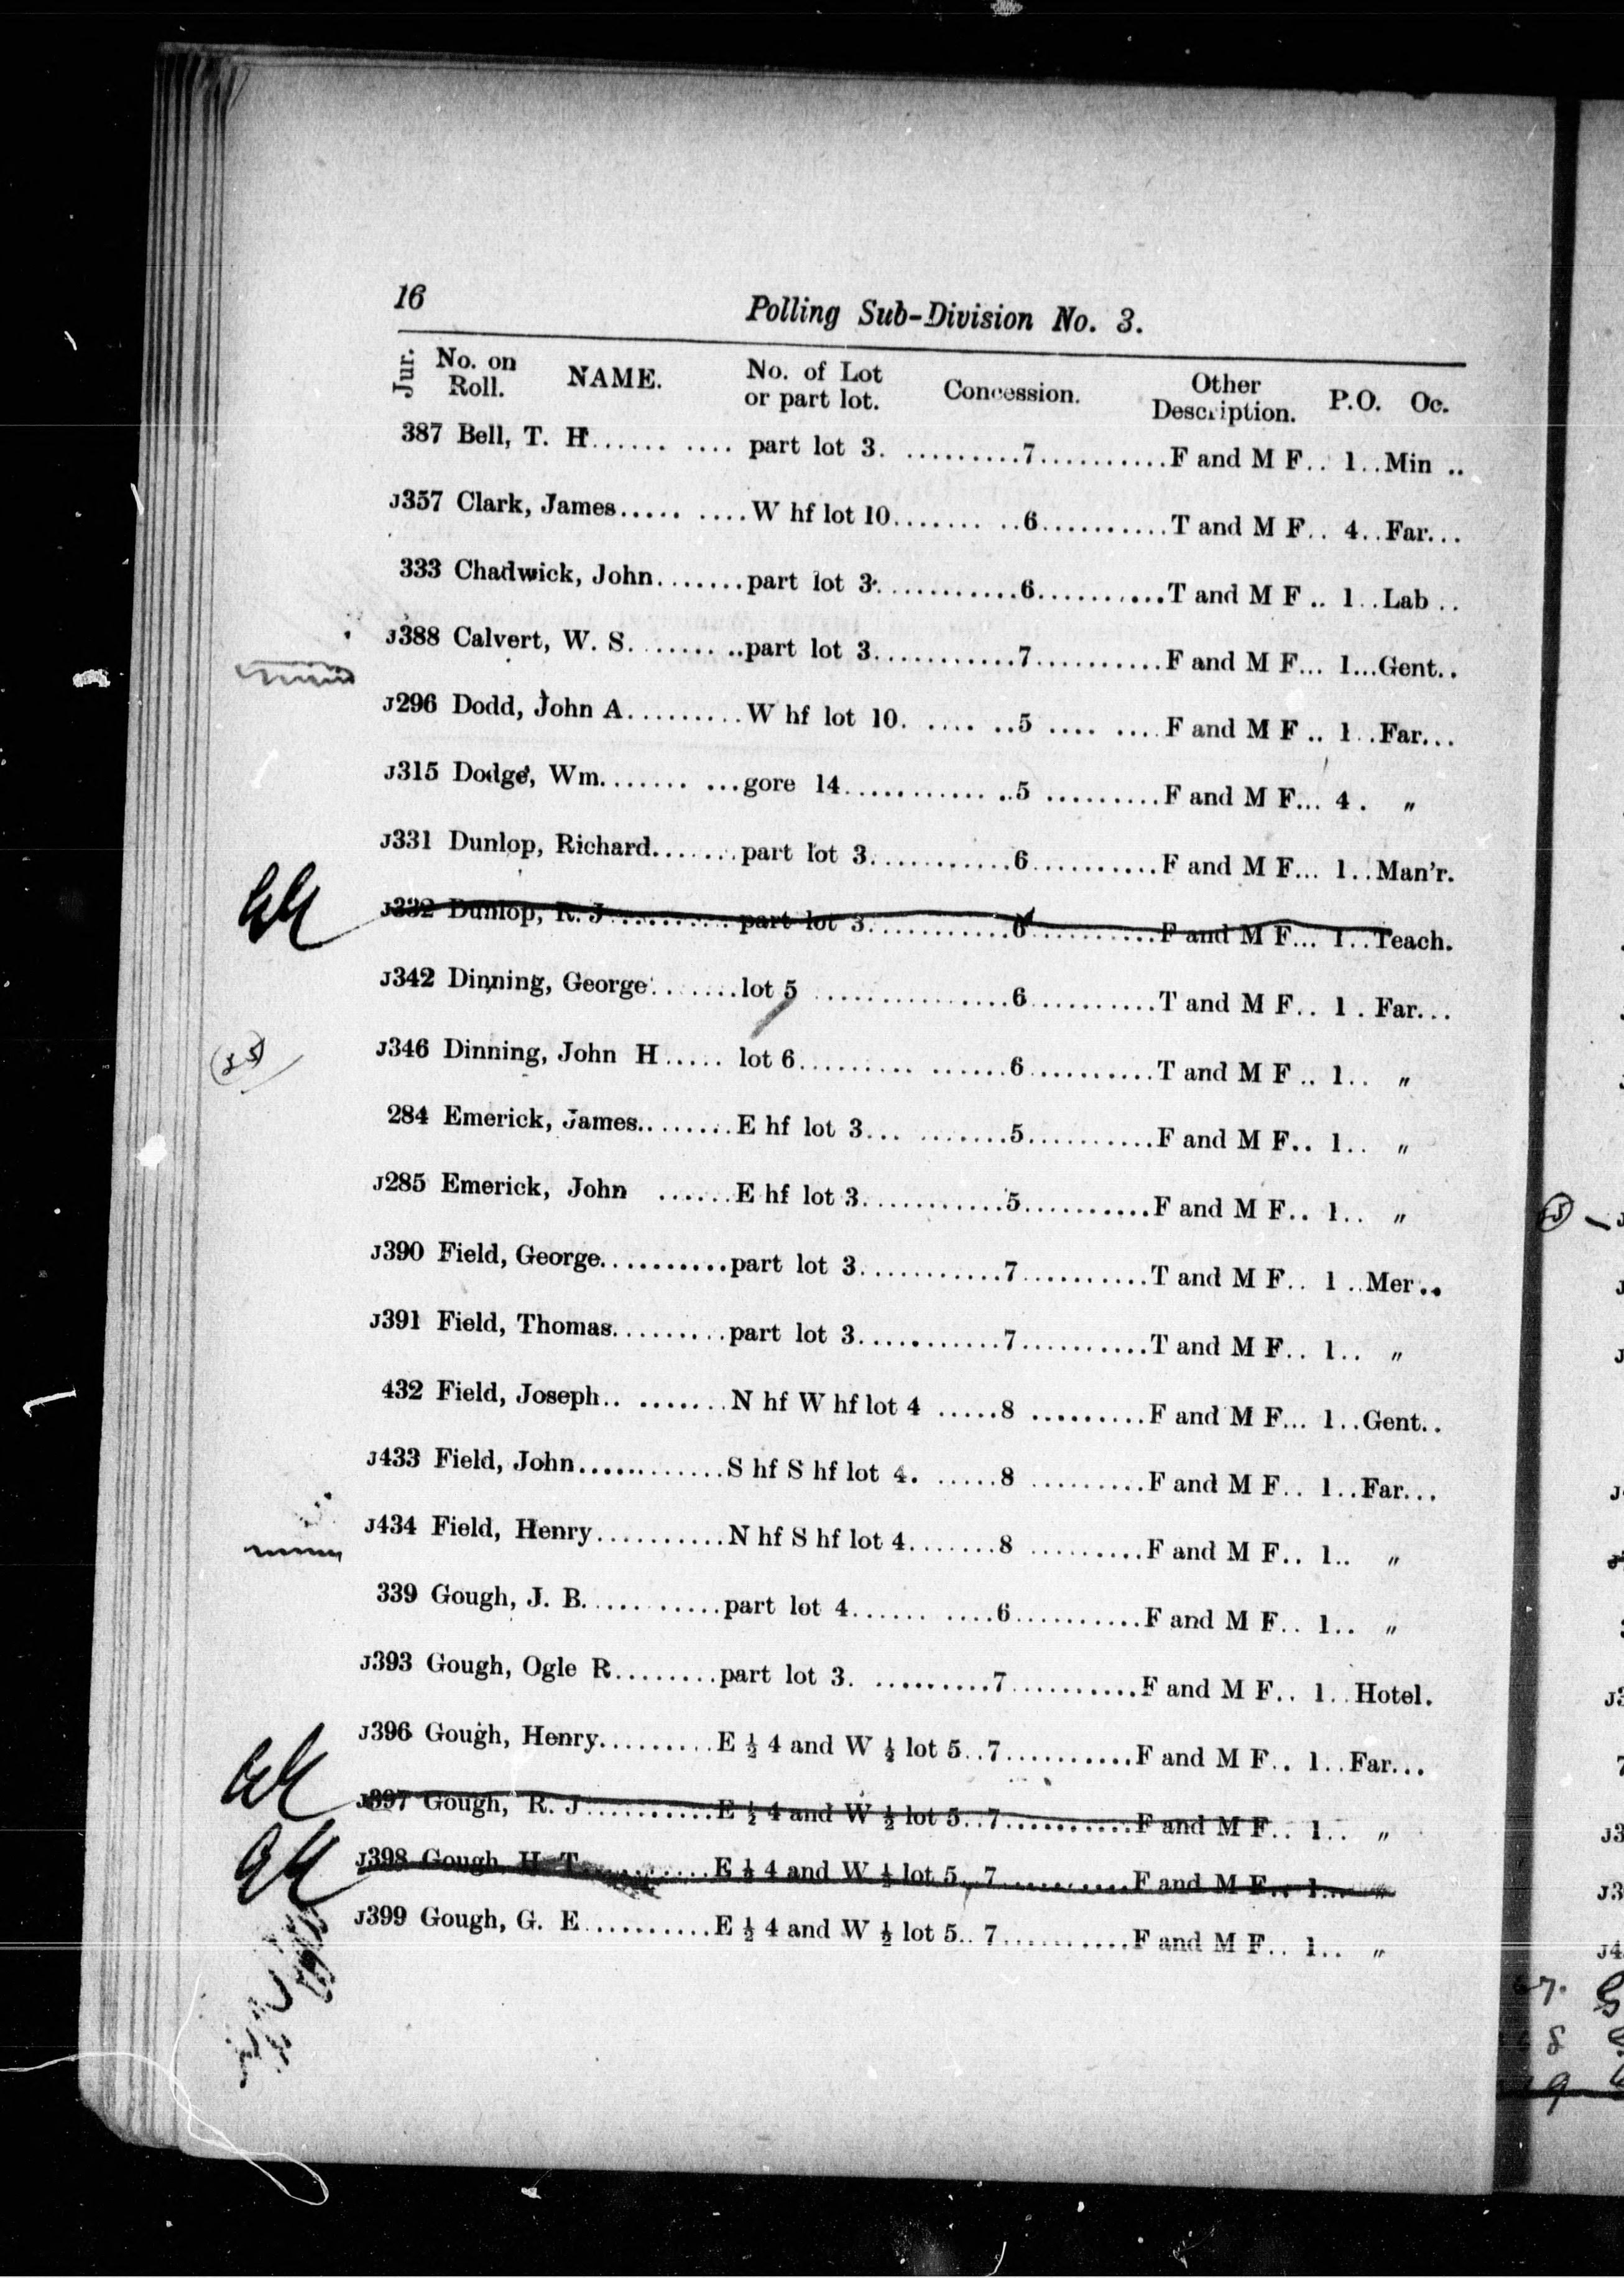 16 Polling Sub-Division No. 3.
Jur. No. on Roll. NAME. No. of Lot or part lot. Concession. Other Description. P.O. Oc.
387 Bell, T. H...... .... part lot 3. ..........7..........F and M F.. 1..Min ..
J357 Clark, James..... ....W hf lot 10....... ..6..........T and M F.. 4..Far...
333 Chadwick, John.......part lot 3............6..........T and M F .. 1..Lab ..
J388 Calvert, W. S....... ..part lot 3...........7..........F and M F... 1...Gent..
J296 Dodd, John A.........W hf lot 10. .... ..5 .... ....F and M F .. 1..Far...
J315 Dodge, Wm....... ...gore 14............ ..5 .........F and M F... 4 . „
J331 Dunlop, Richard.......part lot 3...........6..........F and M F... 1..Man'r.
J332 Dunlop, R. J..........part lot 3...........6..........F and M F... 1..Teach.
J342 Dinning, George.......lot 5 ...............6..........T and M F.. 1 . Far...
J346 Dinning, John H..... lot 6......... ......6..........T and M F .. 1.. „
284 Emerick, James........E hf lot 3... .......5..........F and M F.. 1.. „
J285 Emerick, John ......E hf lot 3...........5..........F and M F.. 1.. „
J390 Field, George..........part lot 3...........7..........T and M F.. 1 ..Mer..
J391 Field, Thomas.........part lot 3...........7..........T and M F.. 1.. „
432 Field, Joseph.. .......N hf W hf lot 4 .....8 .........F and M F... 1..Gent..
J433 Field, John............S hf S hf lot 4. .....8 .........F and M F.. 1..Far...
J434 Field, Henry..........N hf S hf lot 4.......8 .........F and M F.. 1.. „
339 Gough, J. B...........part lot 4...... ....6..........F and M F.. 1.. „
J393 Gough, Ogle R........part lot 3. .........7..........F and M F.. 1..Hotel.
J396 Gough, Henry.........E ½ 4 and W ½ lot 5..7..........F and M F.. 1..Far...
J397 Gough, R. J..........E ½ 4 and W ½ lot 5..7..........F and M F.. 1.. „
J398 Gough, H. T..........E ½ 4 and W ½ lot 5..7..........F and M F.. 1... „
J399 Gough, G. E..........E ½ 4 and W ½ lot 5.. 7..........F and M F.. 1.. „